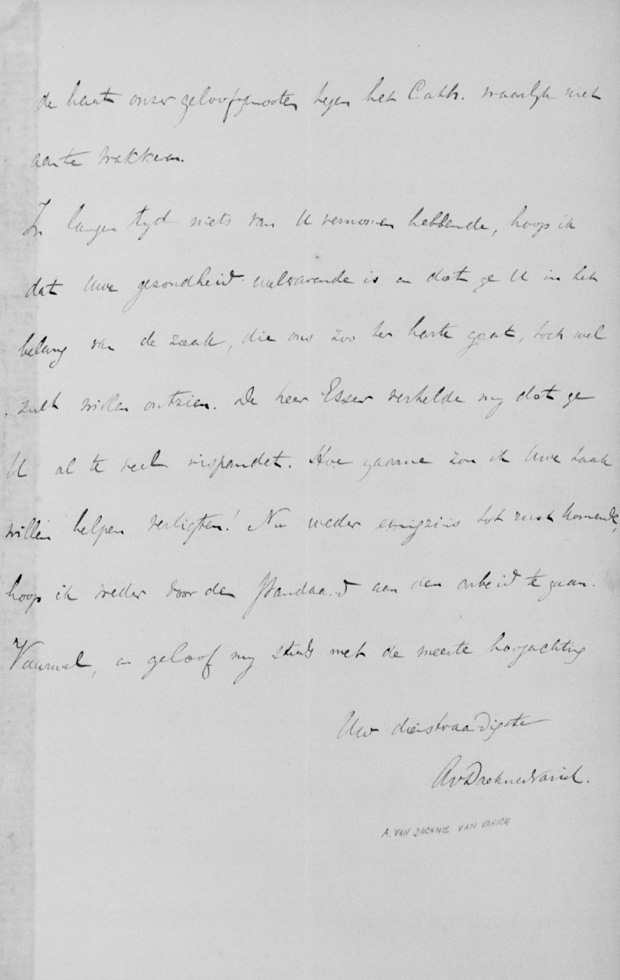 de haat onzer geloofsgenooten tegen het Cath. waarlijk niet
aan te wakkeren.
In langen tyd niets van U vernomen hebbende, hoop ik
dat Uwe gezondheid welvarende is en dat ge U in het
belang van de zaak, die ons zoo ter harte gaat, toch wel
zult willen ontzien. De heer Esser vertelde my dat ge
U al te veel inspandet. Hoe gaarne zou ik Uwe taak
willen helpen verligten! Nu weder eenigzins tot rust komende,
hoop ik weder voor den Standaard aan den arbeid te gaan.
Vaarwel, en geloof my steeds met de meeste hoogachting
Uw dienstvaardigste
AvDaehnevVarick.
A. VAN DAEHNE VAN VARICK